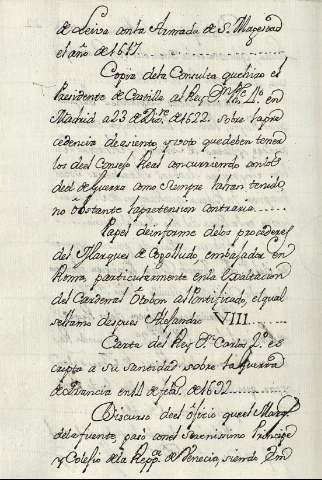 de Leiva con la Armada de S. Magestad
el año de 1617.
Copia de la Consulta que hizo el
Presidente de Castilla al Rey Dn. Phe. 4º en
Madrid a 23 de Dize. de 1622. sobre la pre
cedencia de asiento, y voto que deben tener
los del Consejo Real concurriendo con los
del de Guerra como siempre la han tenido,
no obstante la pretension contraria
Papel de informe de los procederes
del Marques de Cogolludo embajador en
Roma, particularmente en la exaltacion
del Cardenal Otobon al Pontificado, el qual
se llamo despues Alejandro VIII.
Carta del Rey Dn. Carlos 2º es
cripta a su santidad sobre la guerra
de Francia en 14 de feb. de 1692
Discurso del oficio que el Marqs.
de la fuente, paso con el Serenisimo Principe
y Colegio de la Repp.ca de Venecia, siendo Em